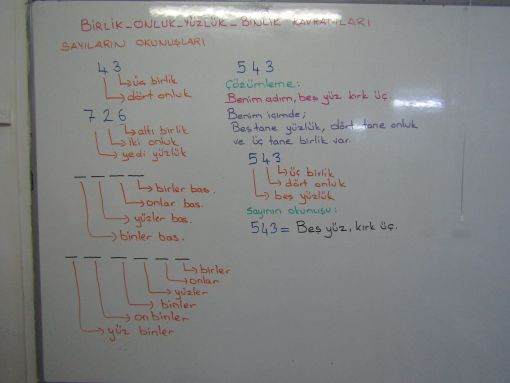 BİRLİK_ONLUK_YÜZLÜK_BİNLİK KAVRAMLARI
SAYILARIN OKUNUŞLARI
43
üç birlik
dört onluk
726
altı birlik
iki onluk
yedi yüzlük
birler bas.
onlar bas.
yüzler bas.
binler bas.
birler
onlar
yüzler
binler
on binler
yüz binler
543
Çözümleme:
Benim adım, beş yüz kırk üç.
Benim içimde;
Beş tane yüzlük, dört tane onluk
ve üç tane birlik var.
543
üç birlik
dört onluk
beş yüzlük
Sayının okunuşu:
543 = Beş yüz, kırk üç.